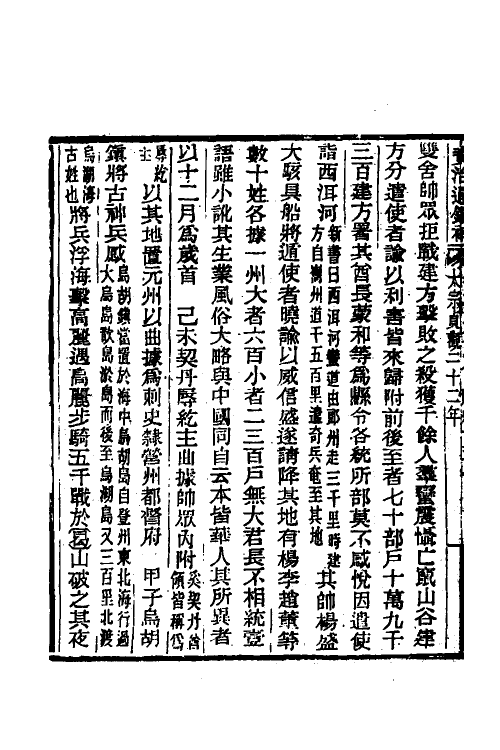 太宗貞觀二十二年
雙舍帥眾拒戰建方擊敗之殺獲千餘人羣蠻震慴亡竄山谷建
方分遣使者諭以利害皆來歸附前後至者七十部戶十萬九千
三百建方署其酋長蒙和等爲縣令各統所部莫不感悅因遣使
詣西洱河新書曰西洱河蠻道由郎州走三千里時建方自巂州道千五百里遣奇兵奄至其地其帥楊盛
大駭具船將遁使者曉諭以威信盛遂請降其地有楊李趙董等
數十姓各據一州大者六百小者二三百戶無大君長不相統壹
語雖小訛其生業風俗大略與中國同自云本皆華人其所異者
以十二月爲歲首 己未契丹辱紇主曲據帥眾內附奚契丹酋領皆稱爲
辱紇主以其地置元州以曲據爲刺史隸營州都督府 甲子烏胡
鎮將古神烏胡鎮當置於海中烏胡島自登州東北海行過大島島歆島淤島而後至烏湖島又三百里北渡
烏湖海古姓也將兵浮海擊高麗遇高麗步騎五千戰於曷山破之其夜